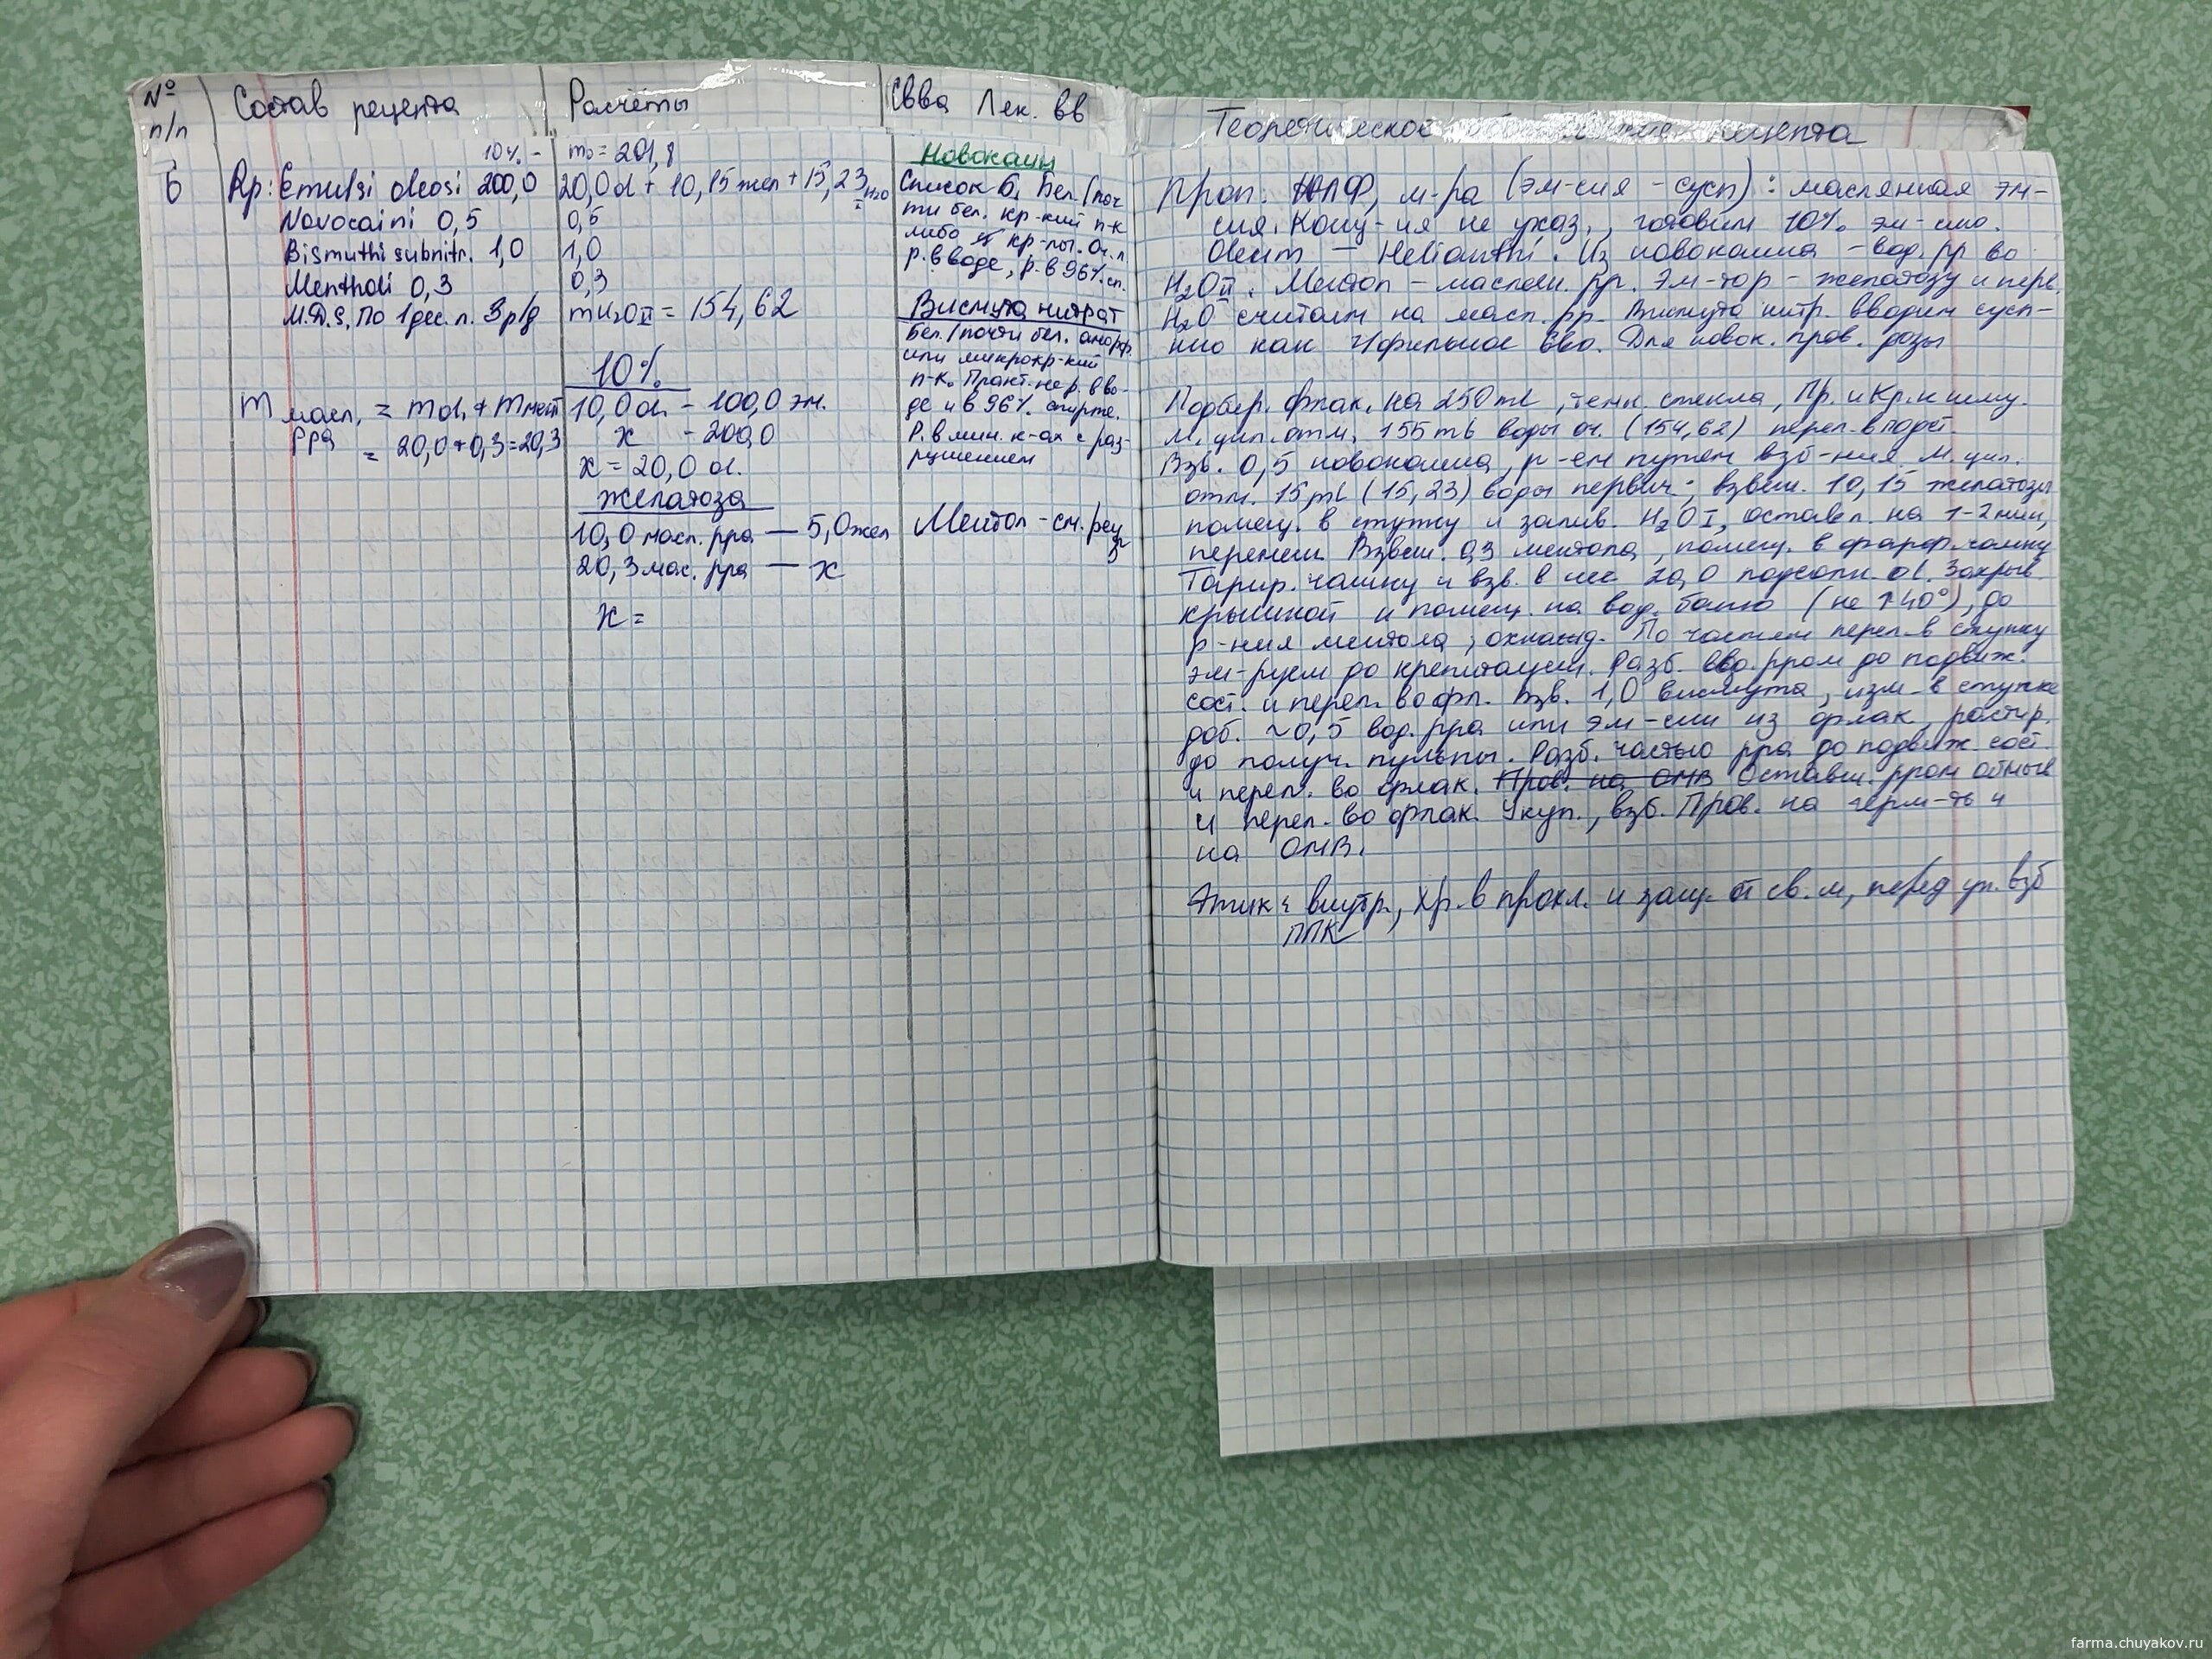 № п/п
Состав рецепта
Расчёты
Свва Лек. вв
Теоретическое рецепта
6
10% -
Rp: Emulsi oleosi 200,0
Novocaini 0,5
Bismuthi subnitr. 1,0
Mentholi 0,3
M.D.S. По 1 дес. л. 3 р/д
m масл. рра = m ol. + m мент
= 20,0 + 0,3 = 20,3
m₀ = 201,8
20,0 ol + 10,15 жел + 15,23 H₂O I
0,5
1,0
0,3
mH₂O II = 154,62
10%
10,0 ol. - 100,0 эм.
x - 200,0
x = 20,0 ol.
желатоза
10,0 масл. рра — 5,0 жел
20,3 мас. рра — x
x =
Новокаин
Список Б. Бел. (поч
ти бел. кр-кий п-к
либо кр-лы. Оч. л.
р. в воде, р. в 96% сп.
Висмута нитрат
Бел./почти бел. аморф.
или микрокр-кий
п-к. Практ. не р. в во-
де и в 96% спирте.
Р. в мин. к-ах с раз-
рушением
Ментол - см. рец
3
Проп. ЖЛФ, м-ра (эм-сия - сусп): маслянная эм-
сия. Конц-ия не указ., готовим 10% эм-сию.
Oleum — Helianthi. Из новокаина - вод. рр во
H₂O II. Ментол - маслян. рр. Эм-тор - желатозу и перв.
H₂O считаем на масл. рр. Висмута нитр. вводим сусп-
ию как гфильное вво. Для новок. пров. дозы
Подбер. флак. на 250 ml, темн. стекла, Пр. и Кр. к нему.
М. цил. отм. 155 ml воды оч. (154,62) перел. в подст.
Взв. 0,5 новокаина, р-ем путем взб-ния. М. цил.
отм. 15 ml (15,23) воды первич.; взвеш. 10,15 желатозы
помещ. в ступку и залив. H₂O I, оставл. на 1-2 мин,
перемеш. Взвеш. 0,3 ментола, помещ. в фарф. чашку
Тарир. чашку и взв. в нее 20,0 подсолн. ol. Закрыв.
крышкой и помещ. на вод. баню (не ↑ 40°), до
р-ния ментола, охлажд. По частям перел. в ступку
эм-руем до крепитации. Разб. вод. рром до подвиж.
сост. и перел. во фл. Взв. 1,0 висмута, изм. в ступке
доб. ~0,5 вод. рра или эм-сии из флак, растир.
до получ. пульпы. Разб. частью рра до подвиж. сост.
и перел. во флак. Пров. на ОМВ Оставш. рром обмыв
и перел. во флак. Укуп., взб. Пров. на герм-ть и
на ОМВ.
Этик: внутр., Хр. в прохл. и защ. от св. м, перед уп. взб
ППК
farma.chuyakov.ru